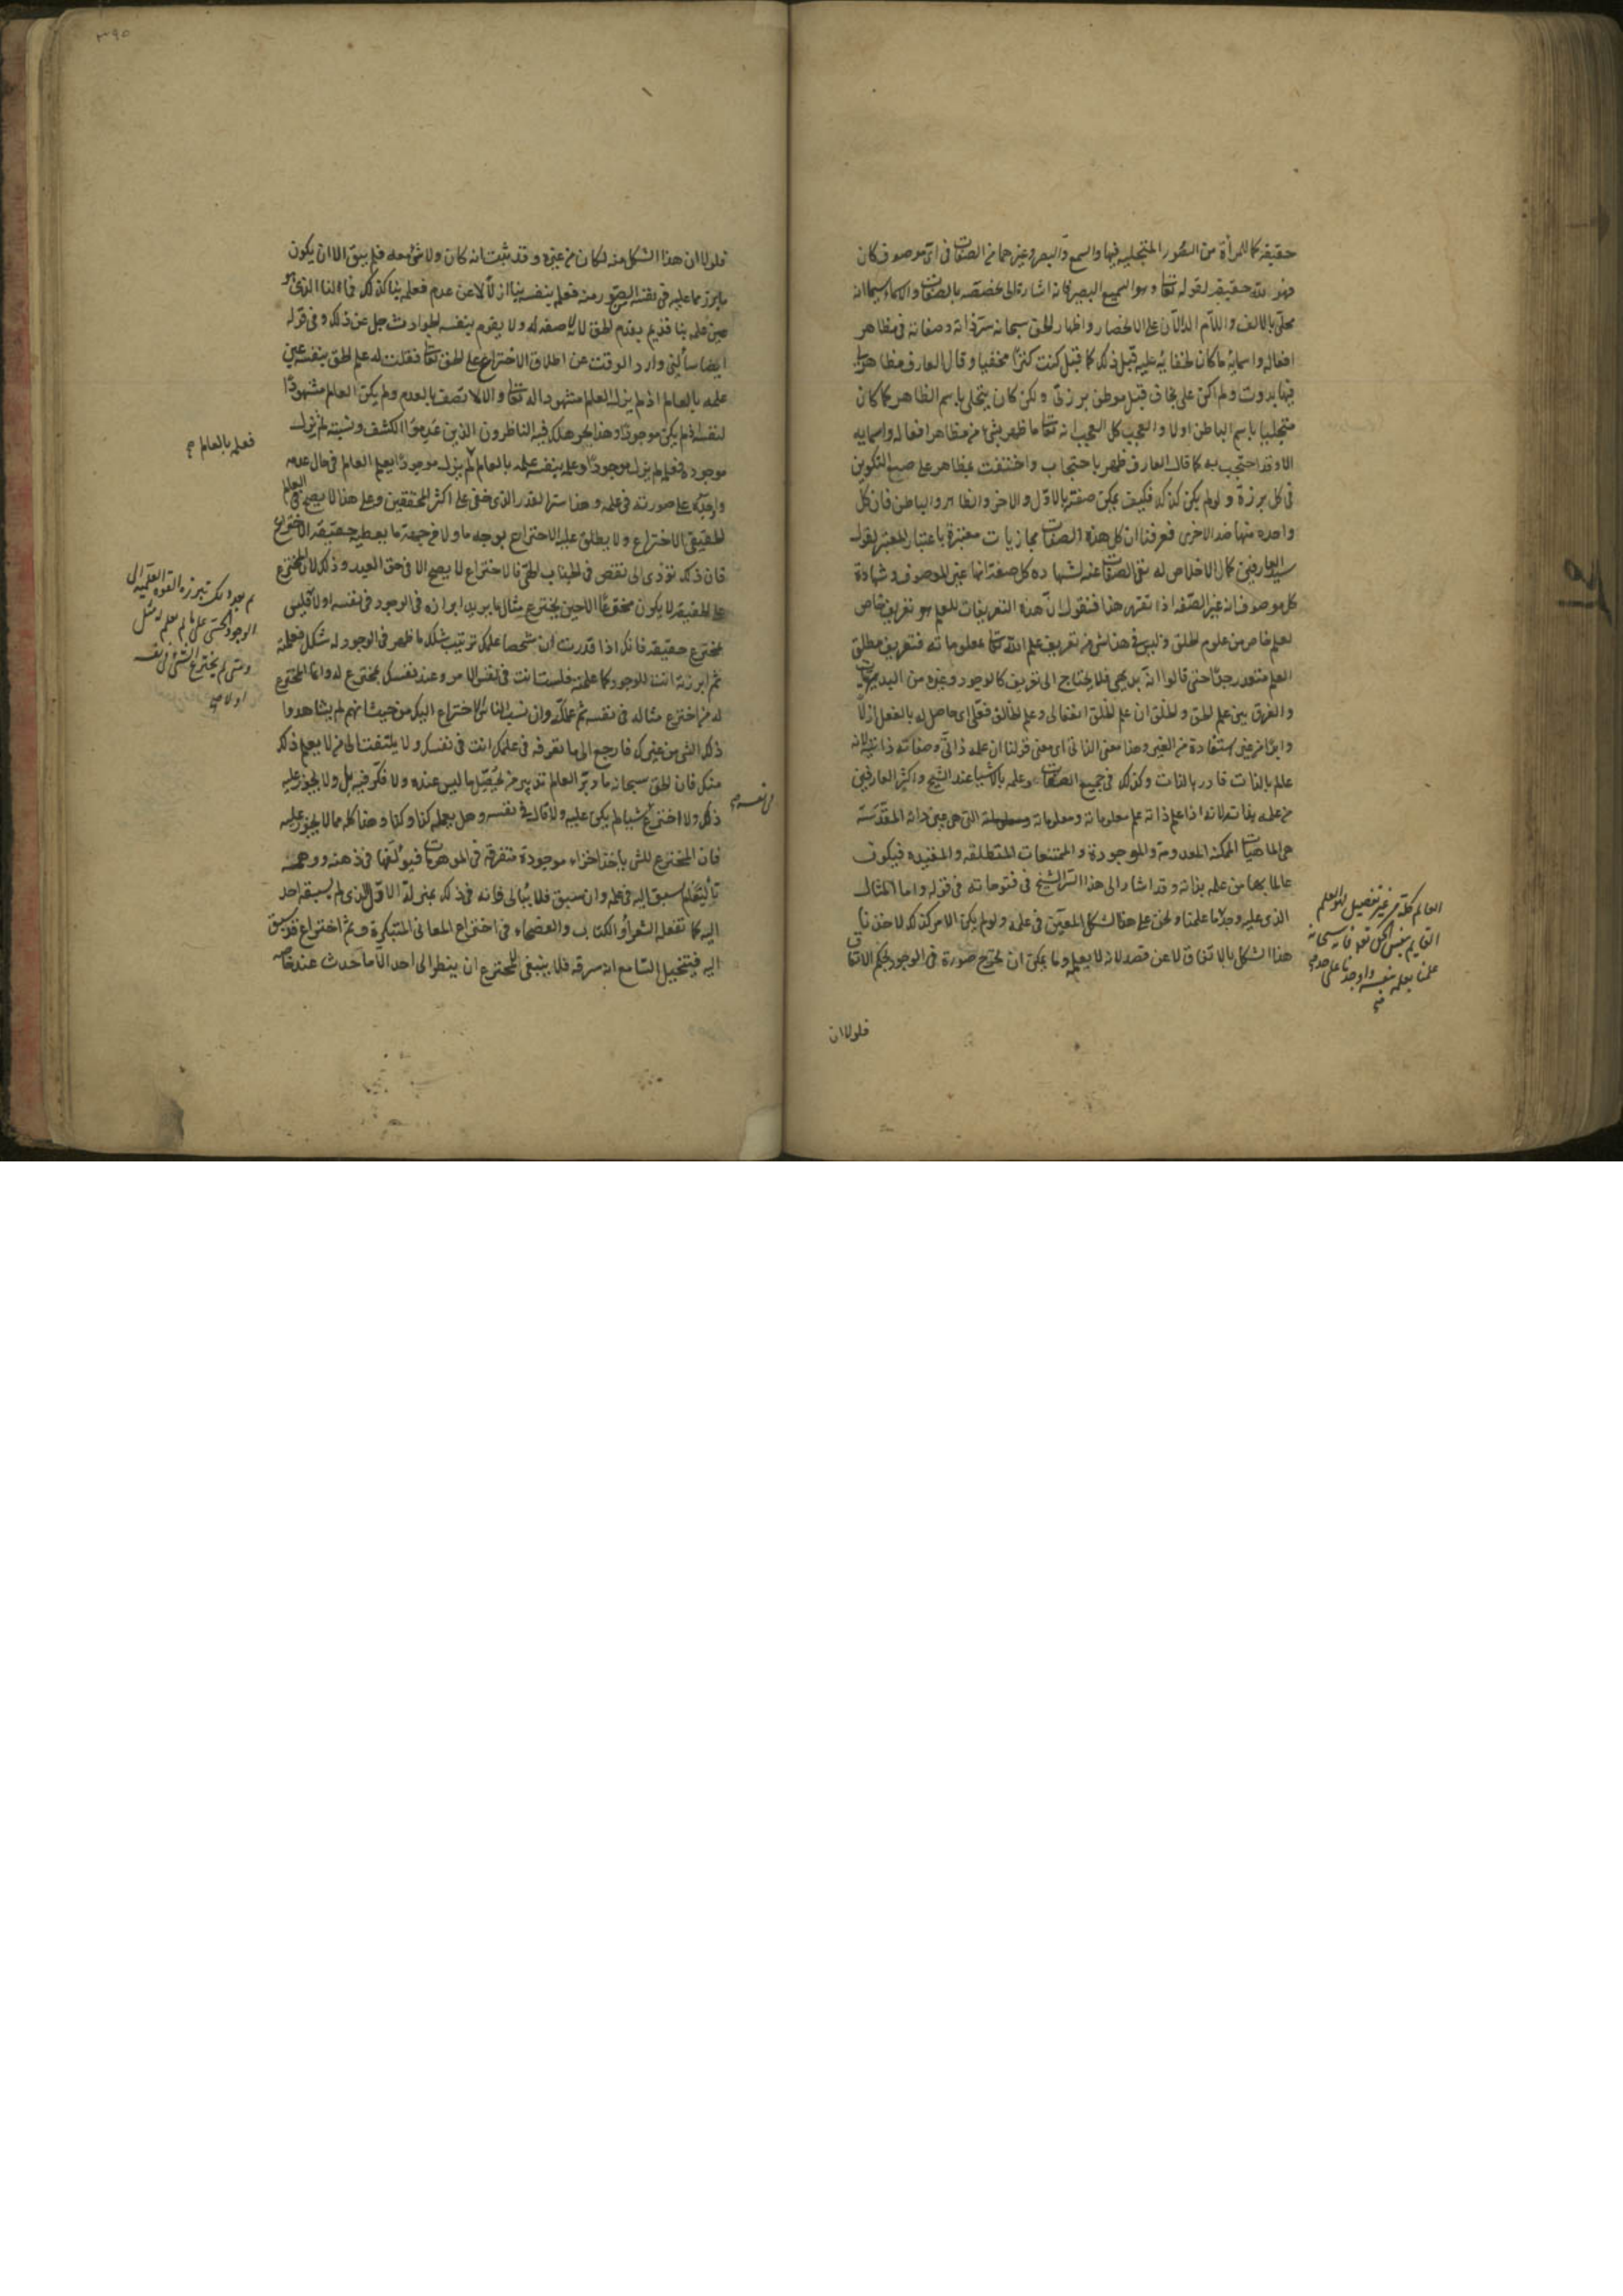 حقيقة كما للمرأة من الصور المتجلية فيها والسمع والبصر وغيرهما من الصفات في اي موصوف كان
فهو لله حقيقة لقوله تعا وهو السميع البصير فانه اشارة الى تخصصه بالصفات والاسماء سيما انه
محلى بالالف واللام الدالان على الانحصار واظهار الحق سبحانه سر ذاته وصفاته في مظاهر
افعاله واسمائه ما كان لخفائه عليه قبل ذلك كما قيل كنت كنزا مخفيا وقال العارف مظاهر لي
فيها بدوت ولم اكن علي بخاف قبل موطن برزتي ولكن كان يتجلى باسم الظاهر كما كان
متجليا باسم الباطن اولا والعجب كل العجب انه تعا ما ظهر بشئ من مظاهر افعاله واسمايه
الا وقد احتجب به كما قال العارف ظهر باحتجاب واختفت بمظاهر على صبغ التكوين
في كل برزة ولو لم يكن كذلك فكيف يمكن صفته بالاول والاخر والظاهر والباطن فان كل
واحدة منها ضد الاخرى فعرفنا ان كل هذه الصفات مجازيات معتبرة باعتبار المعتبر لقول
سيد العارفين كمال الاخلاص له نفي الصفات عنه لشهادة كل صفة انها غير الموصوف وشهادة
كل موصوف انه غير الصفة اذا تقرر هذا فنقول ان هذه التعريفات للعلم هو تعريف خاص
لعلم خاص من علوم الخلق وليس في هذا شئ من تعريف علم الله تعا بمعلوماته فتعريف مطلق
العلم متعذر جدا حتى قالوا انه بديهي فلا يحتاج الى تعريف كالوجود وغيره من البديهيات
والفرق بين علم الحق والخلق ان علم الخلق انفعالي وعلم الخالق فعلي اي حاصل له بالفعل ازلا
وابدا من غير استفادة من الغير وهذا معنى الذاتي اي معنى قولنا ان علمه ذاتي وصفاته ذاتية لانه
عالم بالذات قادر بالذات وكذلك في جميع الصفات وعلمه بالاشيا عند الشيخ واكثر العارفين
من علمه بذاته لانه اذا علم ذاته علم معلوماته ومعلوماته التي هي عين ذاته المقدسة
هي الماهيات الممكنة المعدومة والموجودة والممتنعات المطلقة والمقيدة فيكون
عالما بها من علمه بذاته وقد اشار الى هذا السر الشيخ في فتوحاته في قوله واما المثال
الذي عليه وجدنا علمنا ونحن على هذا الشكل المعين في علمه ولو لم يكن الامر كذلك لاخذنا
هذا الشكل بالاتفاق لا عن قصد لانه لا يعلمه وما يمكن ان يخرج صورة في الوجود بحكم الاتفاق
العالم كله من غير تفصيل هو العلم
القايم بنفس الحق تعا فانه سبحانه
علمنا بعلمه بنفسه واوجدنا على حد
فلولا ان
فلولا ان هذا الشكل منه لكان من غيره وقد ثبت انه كان ولا شئ معه فلم يبق الا ان يكون
ما برز مما عليه في نفسه الصور منه فعلمه بنفسه بنا ازلا لا عن عدم فعلمه بنا كذلك فمثالنا الذي هو
عين علمه بنا قديم بقدم الحق لانه صفة له ولا يقوم بنفسه الحوادث جل عن ذلك وفي قوله
ايضا سألني وارد الوقت عن اطلاق الاختراع على الحق تعا فقلت له علم الحق بنفسه عين
علمه بالعالم اذ لم يزل العالم مشهودا له تعا وان اتصف بالعدم ولم يكن العالم مشهودا
لنفسه اذ لم يكن موجودا وهذا بحر هلك فيه الناظرون الذين عدموا الكشف ونسبته لم يزل
موجودة فعلمه لم يزل موجودا وعلمه بنفسه علمه بالعالم لم يزل موجودا فعلم العالم في حال عدمه
واوجده على صورته في علمه وهذا سر القدر الذي خفي على اكثر المحققين وعلى هذا لا يصح في العالم
الحقيقي الاختراع ولا يطلق عليه الاختراع بوجه ما ولا من جهة ما يعطيه حقيقة الاختراع
فان ذلك تؤدي الى نقص في الجناب الحق فالاختراع لا يصح الا في حق العبد وذلك لان المخترع
على الحقيقة لا يكون مخترعا الا حين يخترع مثال ما يريد ابرازه في الوجود في نفسه اولا فليس
بمخترع حقيقة فانك اذا قدرت ان شخصا علمك ترتيب شكل ما ظهر في الوجود له شكل فعلمته
ثم ابرزته انت للوجود كما علمته فلست انت في نفس الامر وعند نفسك بمخترع له وانما المخترع
له من اخترع مثاله في نفسه ثم علمكه وان نسب الناس الاختراع اليك من حيث انهم لم يشاهدوا
ذلك الشئ من غيرك فارجع الى ما تعرفه في علمك انت في نفسك ولا يلتفت الى من لا يعلم ذلك
منك فان الحق سبحانه ما دبر العالم تدبير من يحصل ما ليس عنده ولا فكر فيه بل ولا يجوز عليه
ذلك ولا اخترع شيا لم يكن عليه ولا قال في نفسه وهل يعمله كذا وكذا وهذا كله مما لا يجوز عليه
فان المخترع للشئ ياخذ اجزاء موجودة متفرقة في الموجودات فيؤلفها في ذهنه ووهمه
تأليفا لم يسبق اليه في علمه وان سبق فلا يبالي فانه في ذلك بمنزلة الاول الذي لم يسبقه احد
اليه كما تفعله الشعراء والكتاب والفصحاء في اختراع المعاني المبتكرة فثم اختراع قد سبق
اليه فيتخيل السامع انه سرقه فلا ينبغي للمخترع ان ينظر الى احد الا ما حدث عنده خاصه
فعلمه بالعالم
ثم بعد ذلك تبرزه القوة العملية الى
الوجود الحسي على ما يعلم له شكل
ومتى لم يخترع الشئ في نفسه
اولا
في نفسه
٣٩٥